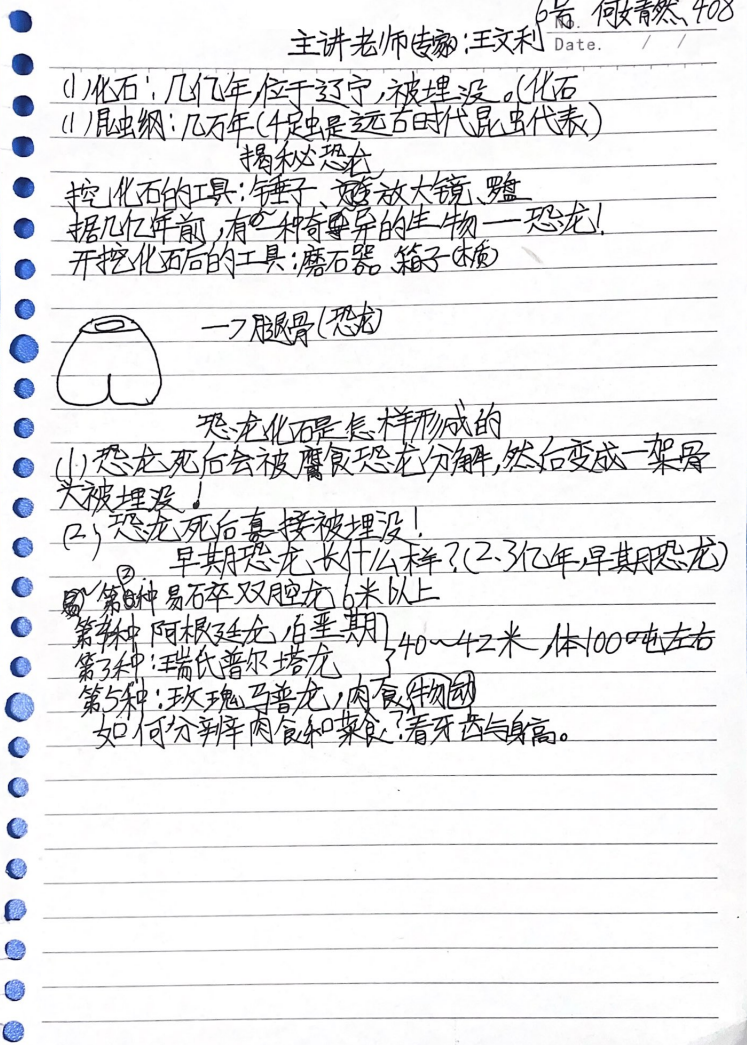 6号 何婧然、408
No.
主讲老师(专家):王文利 Date. / /
(1)化石:几亿年,位于辽宁,被埋没。(化石
(1)昆虫纲:几万年(千足虫是远古时代昆虫代表)
揭秘恐龙
挖化石的工具:锤子、放大镜、罗盘
据几亿年前,有一种奇异的生物——恐龙!
开挖化石后的工具:磨石器、箱子(木质)
—>腿骨(恐龙)
恐龙化石是怎样形成的
(1)恐龙死后会被腐食恐龙分解,然后变成一架骨
头被埋没!
(2)恐龙死后直接被埋没!
早期恐龙长什么样?(2.3亿年,早期恐龙)
第②种 易碎双腔龙 6米以上
第4种 阿根廷龙,白垩期
第3种:瑞氏普尔塔龙
40~42米,体100吨左右
第5种:玫瑰马普龙,肉食动物
如何分辨肉食和菜食?看牙齿与身高。